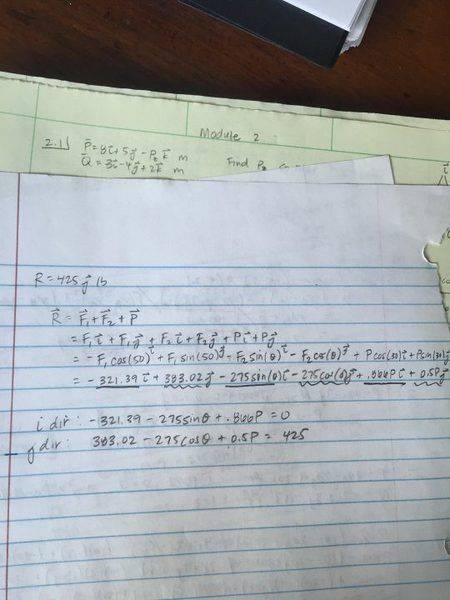 Module 2
2.11 P⃗ = 8i⃗ + 5j⃗ - P_z k⃗ m
Q⃗ = 3i⃗ - 4j⃗ + 2k⃗ m Find P_z
R = 425 j⃗ lb
R⃗ = F⃗₁ + F⃗₂ + P⃗
= F₁i⃗ + F₁j⃗ + F₂i⃗ + F₂j⃗ + Pi⃗ + Pj⃗
= -F₁cos(50)i⃗ + F₁sin(50)j⃗ - F₂sin(θ)i⃗ - F₂cos(θ)j⃗ + Pcos(30)i⃗ + Psin(30)i⃗
= -321.39 i⃗ + 383.02j⃗ - 275sin(θ)i⃗ - 275cos(θ)j⃗ + .866Pi⃗ + 0.5Pj⃗
i dir: -321.39 - 275sinθ + .866P = 0
j dir: 383.02 - 275cosθ + 0.5P = 425